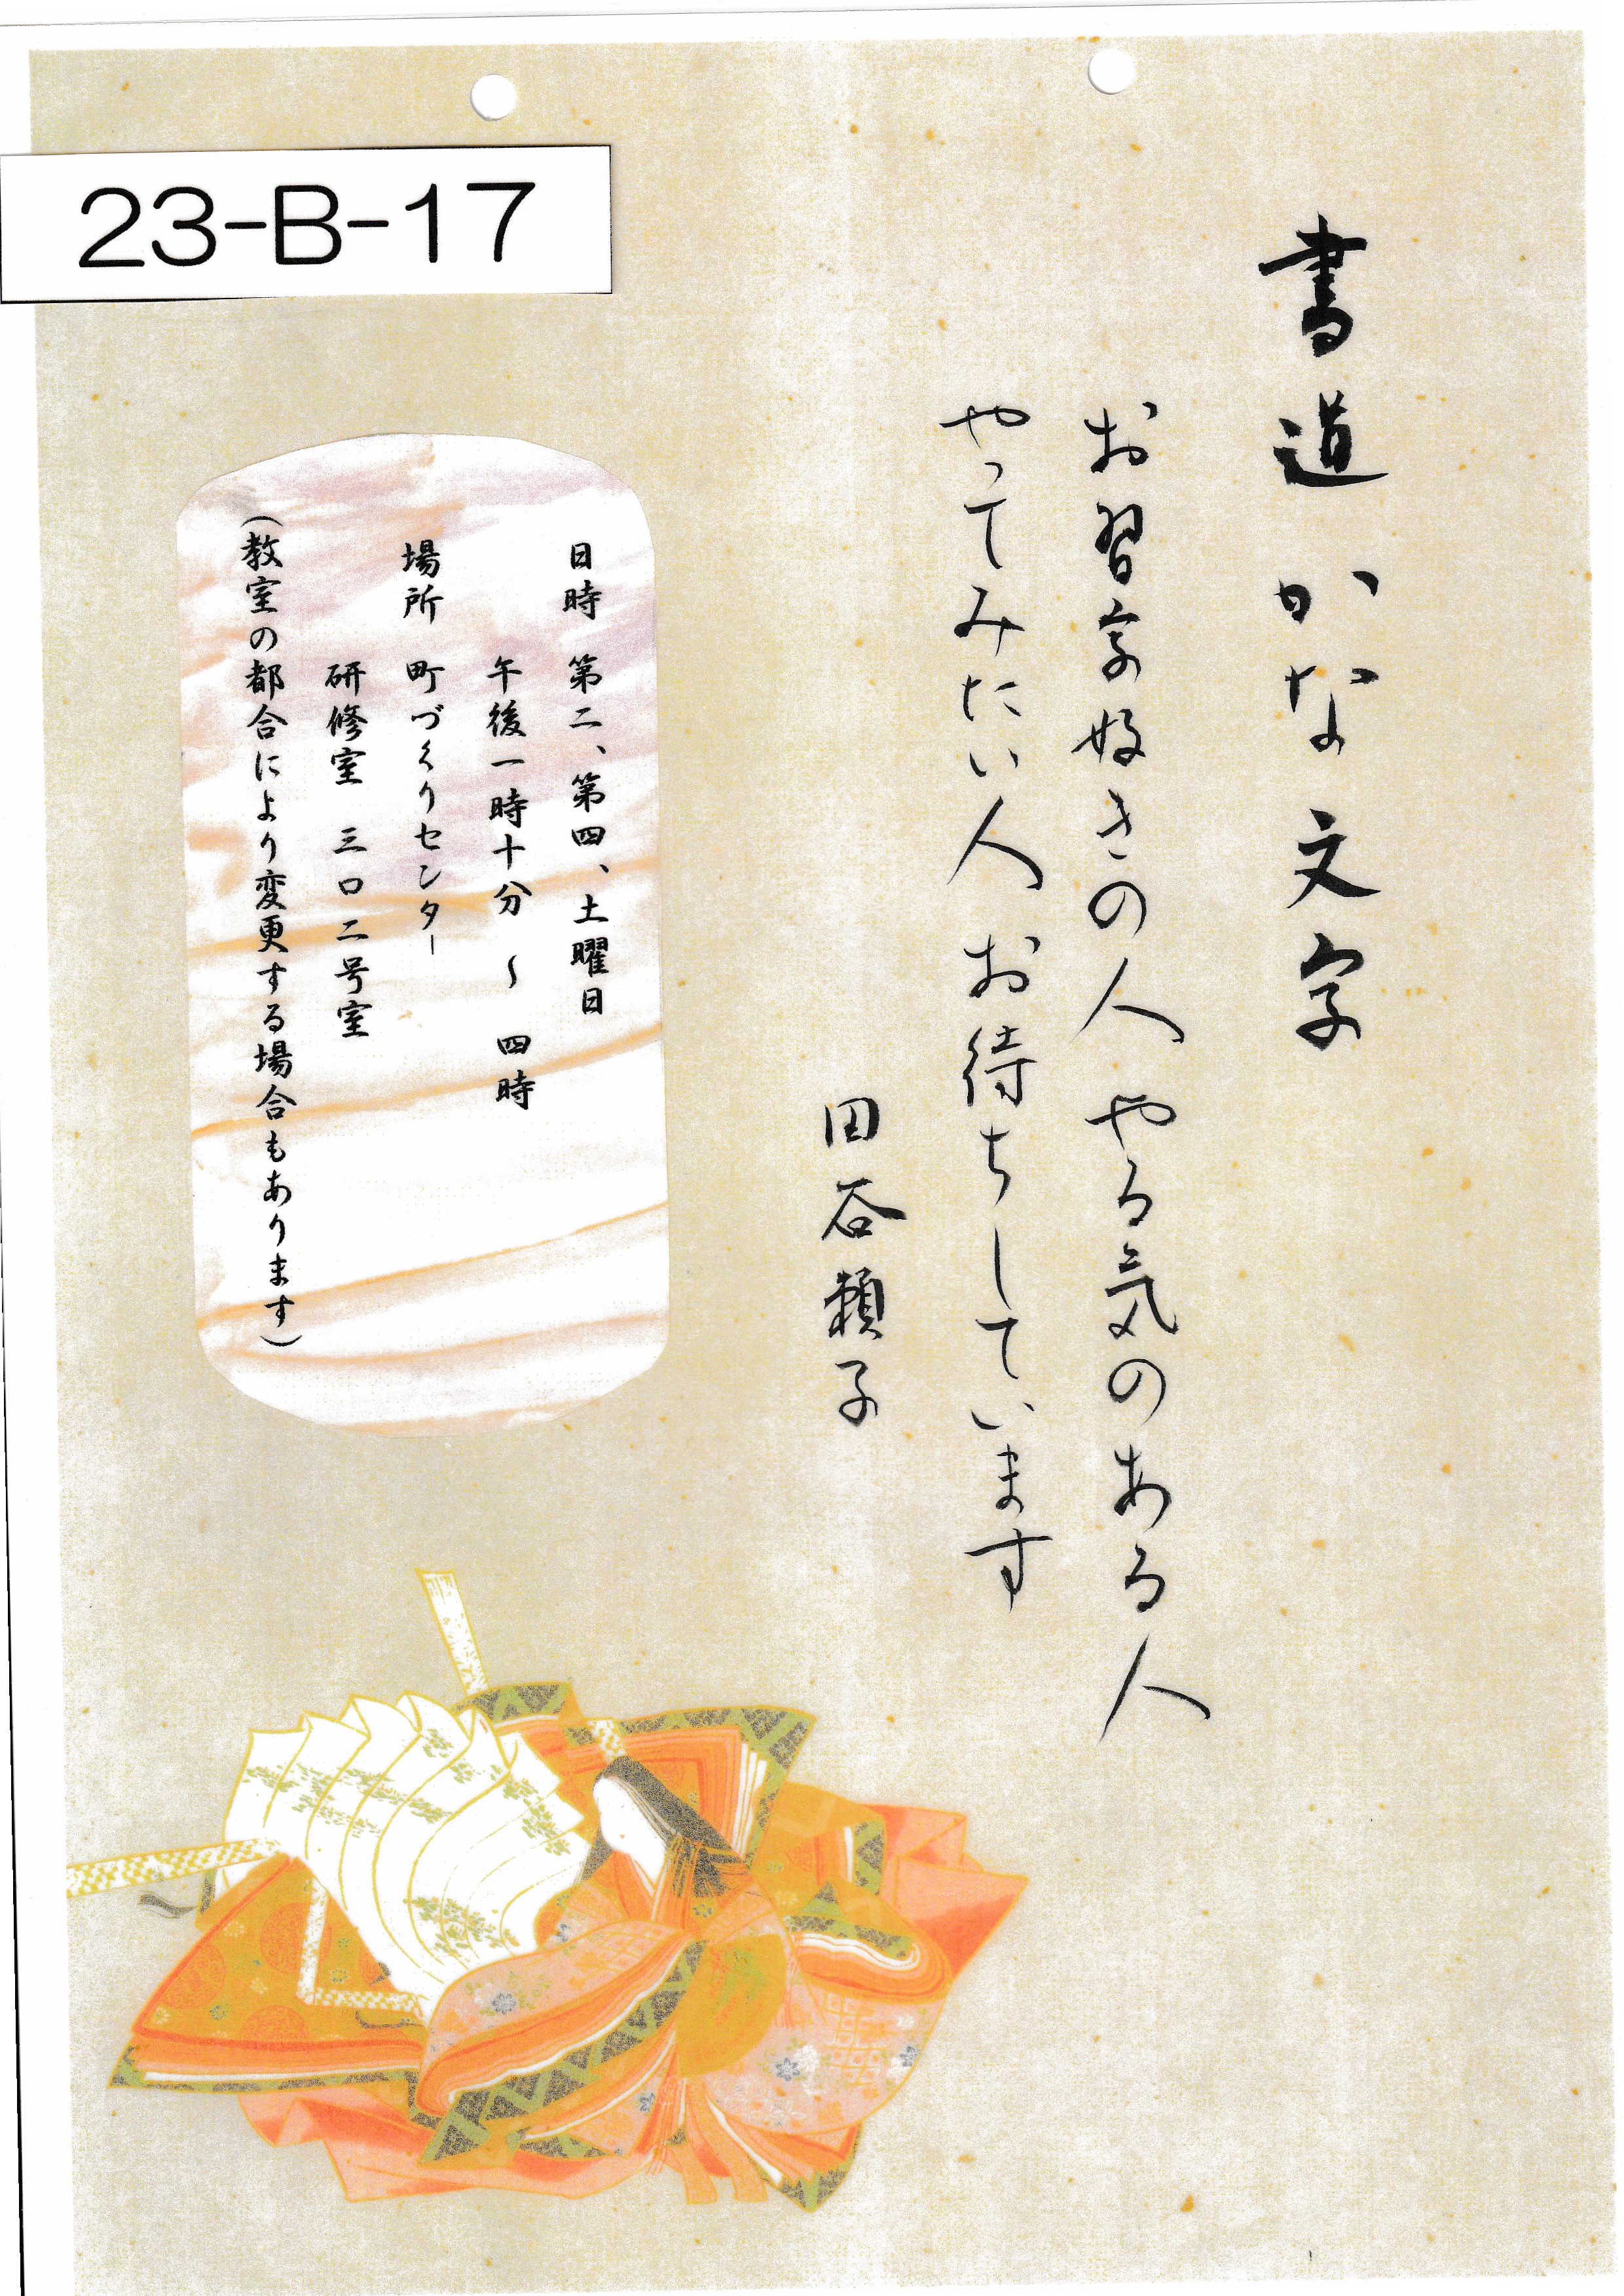 23-B-17
書道 かな文字
お習字好きの人 やる気のある人
やってみたい人 お待ちしています
田谷頼子
日時 第二、第四、土曜日
午後一時十分 〜 四時
場所 町づくりセンター
研修室 三〇二号室
（教室の都合により変更する場合もあります）